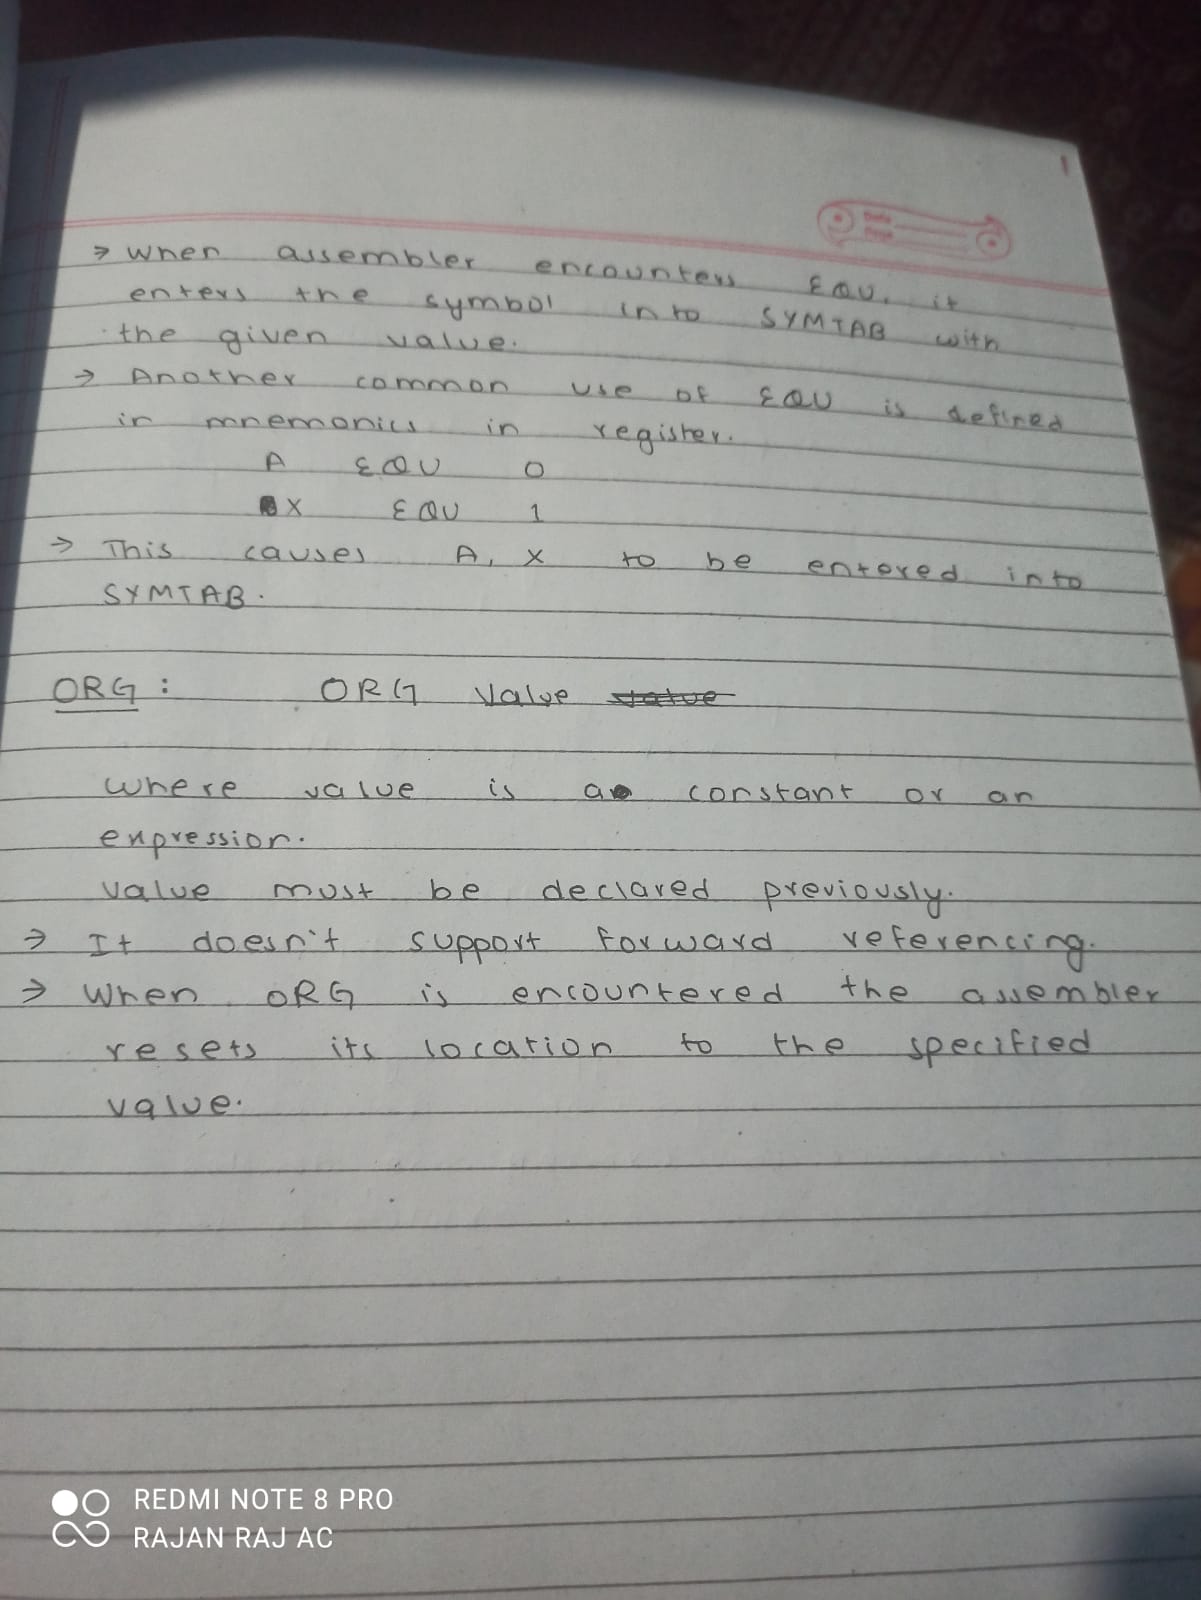 → When assembler encounters EQU, it
enters the symbol into SYMTAB with
the given value.
→ Another common use of EQU is defined
in mnemonics in register.
A EQU 0
X EQU 1
→ This causes A, X to be entered into
SYMTAB.
ORG : ORG Value value
where value is a constant or an
expression.
value must be declared previously.
→ It doesn't support forward referencing.
→ When ORG is encountered the assembler
resets its location to the specified
value.
REDMI NOTE 8 PRO
RAJAN RAJ AC